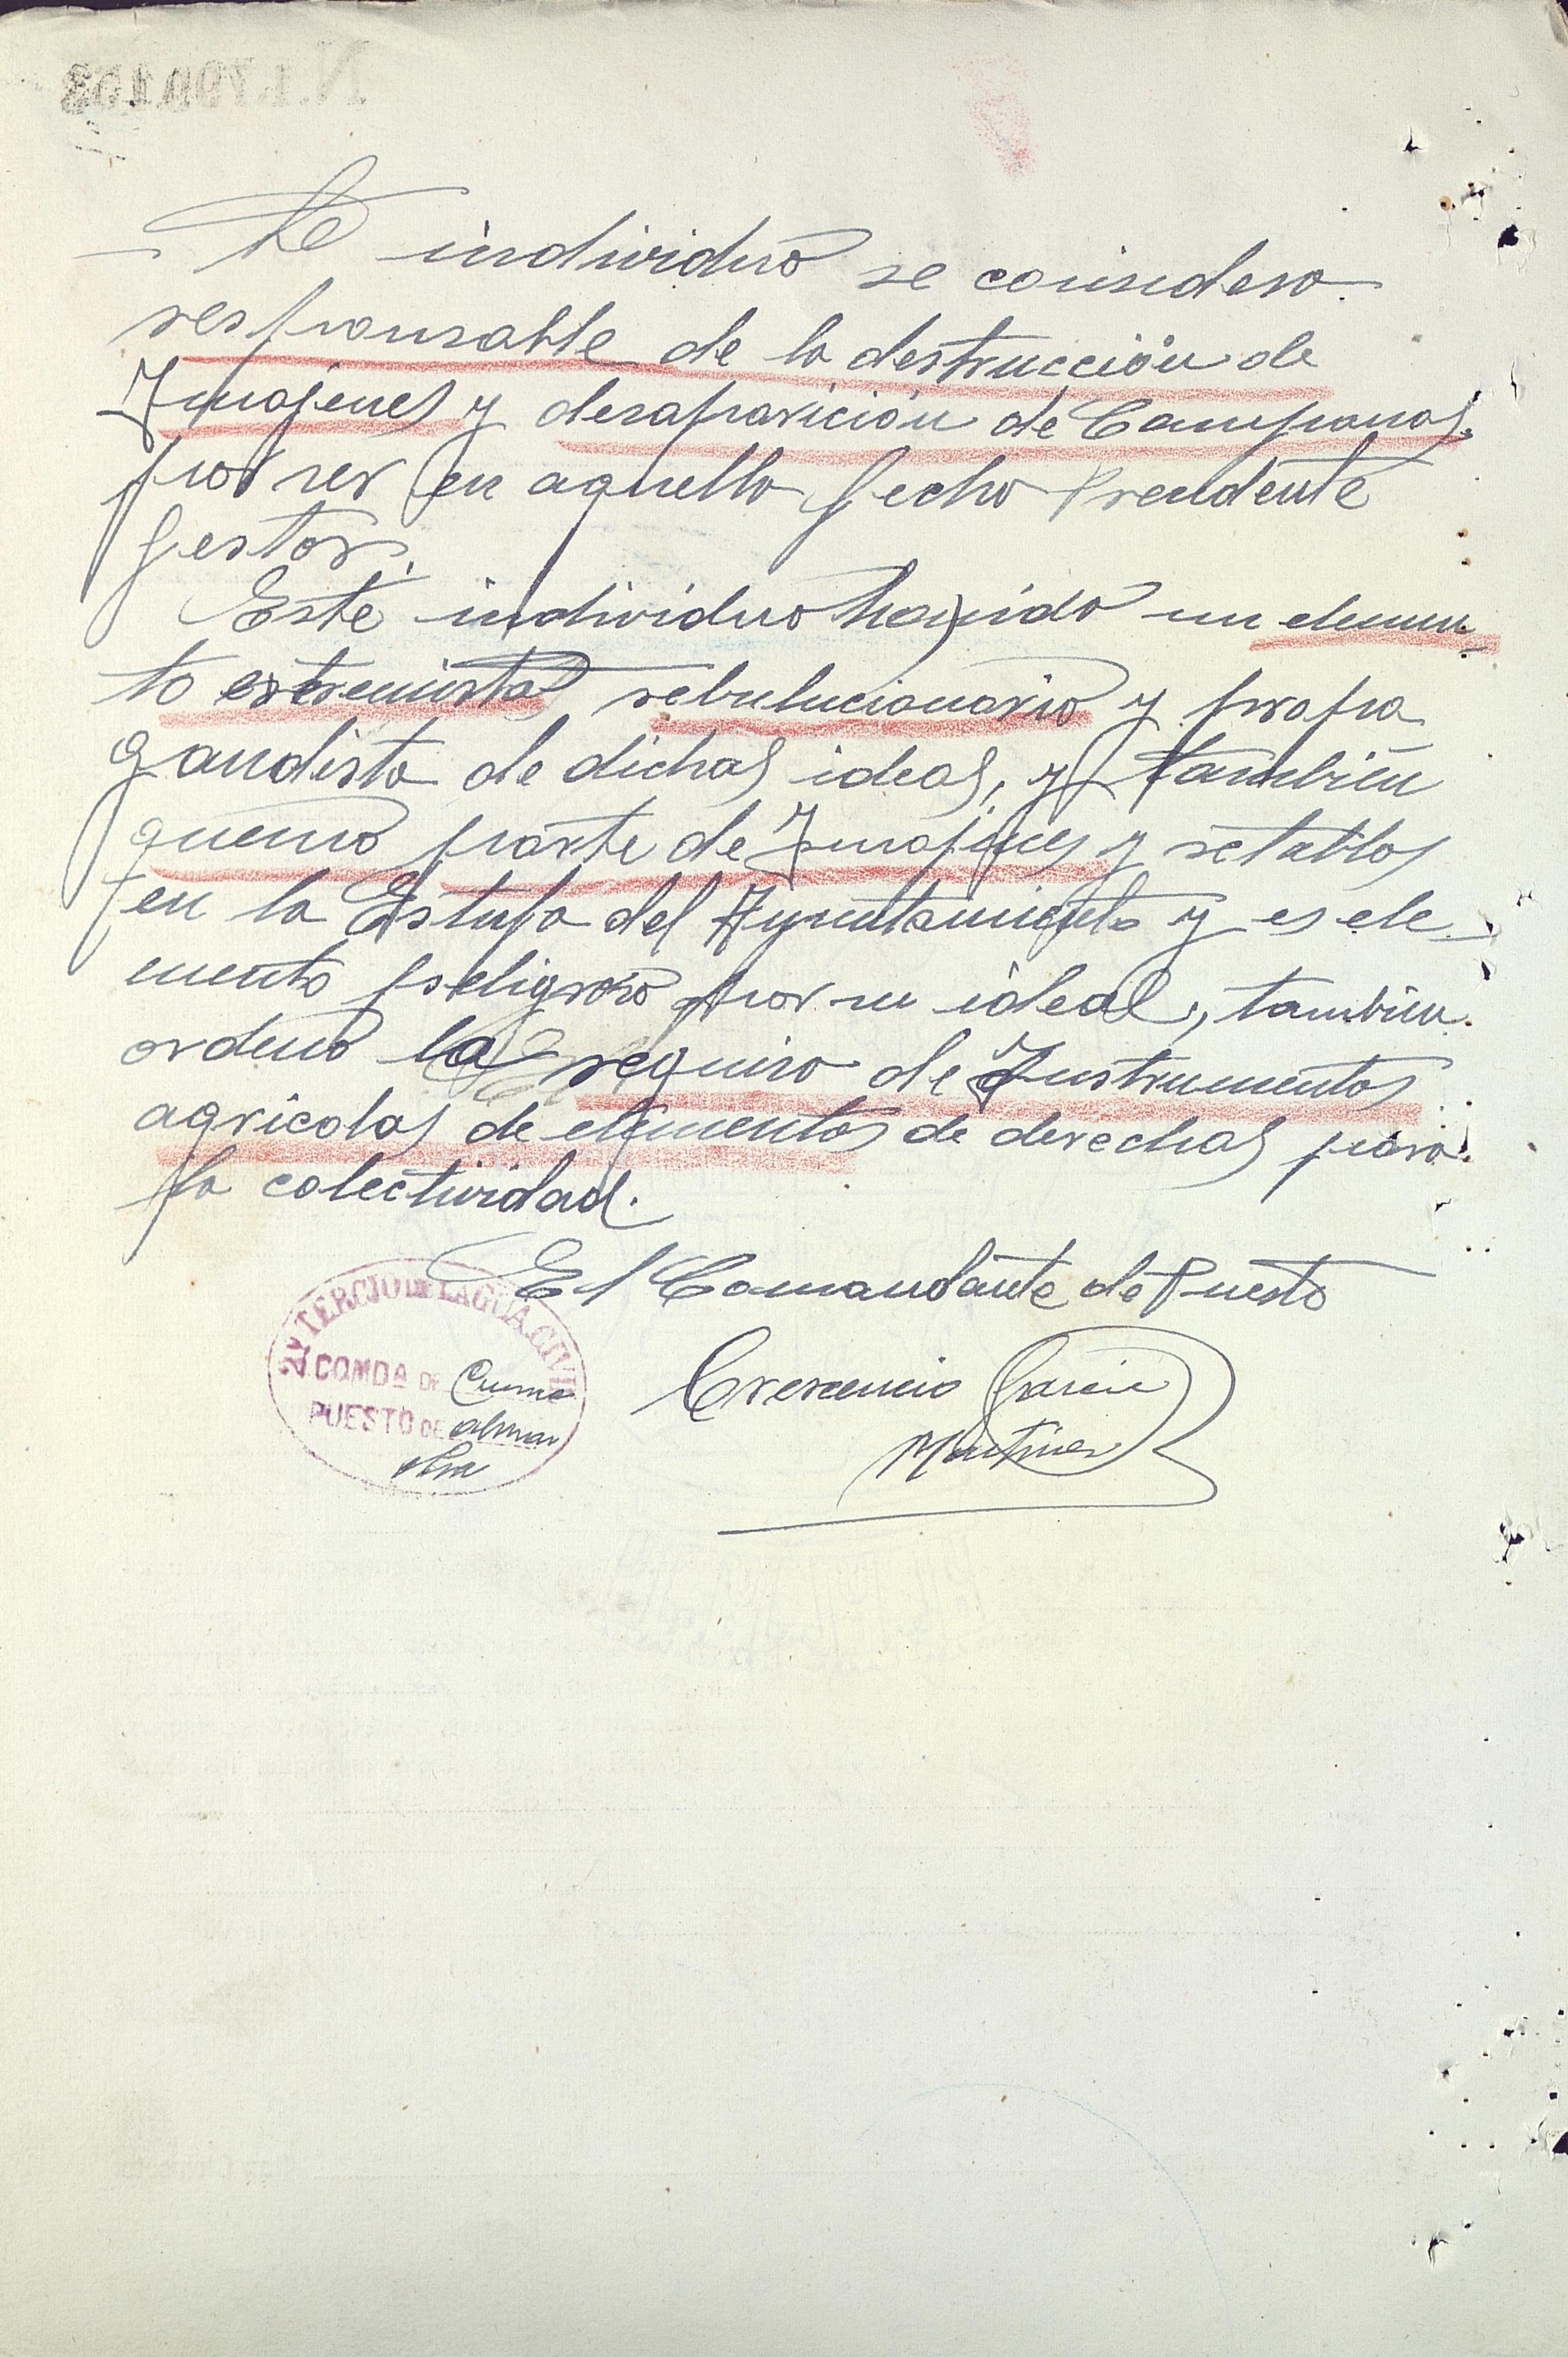 individuo se considera
responsable de la destrucción de
Imajenes y desaparición de Campanas
por ser en aquella fecha Presidente
gestor.
Este individuo ha sido un elemen-
to estremista rebulucionario y propa
gandista de dichas ideas, y tambien
quemo parte de Imajenes y retablos
en la Estufa del Ayuntamiento y es ele-
mento peligroso por su ideal, tambien
ordeno la requisa de Instrumentos
agricolas de elementos de derechas para
la colectividad.
El Comandante de Puesto
Crescencio Garcia
Martinez
TERCIO DE LA GUA. CIVIL
COMDA DE
PUESTO DE